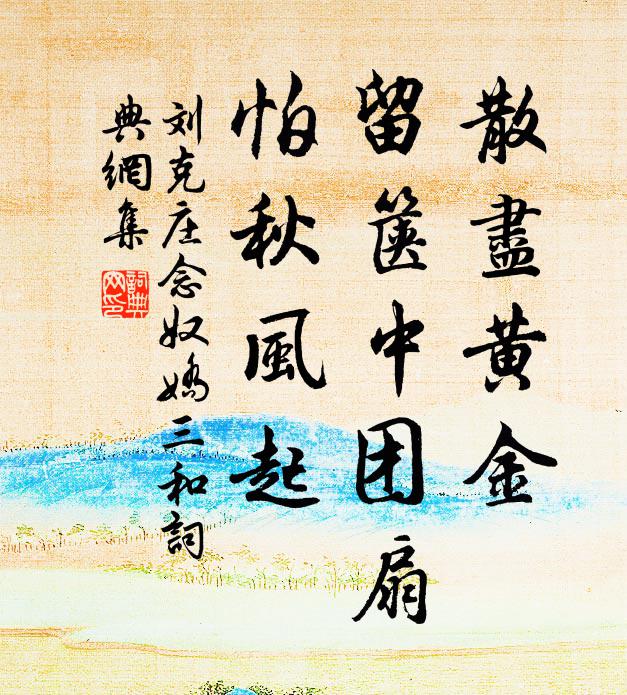 散盡黄金
留箧中团扇
怕秋風起
刘克庄念奴嬌三和詞
典網集
詞典网印